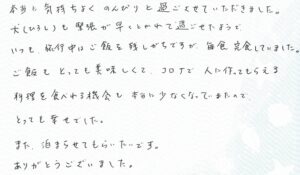 本当に気持ちよくのんびりと過ごさせていただきました。
犬(ひろし)も緊張が早くとかれて過ごせたようで
いつも、旅行中はご飯を残しがちですが、毎食完食していました。
ご飯もとっても美味しくて、コロナで人に作ってもらえる
料理を食べれる機会も本当に少なくなっていたので
とっても幸せでした。
また、泊まらせてもらいたいです。
ありがとうございました。